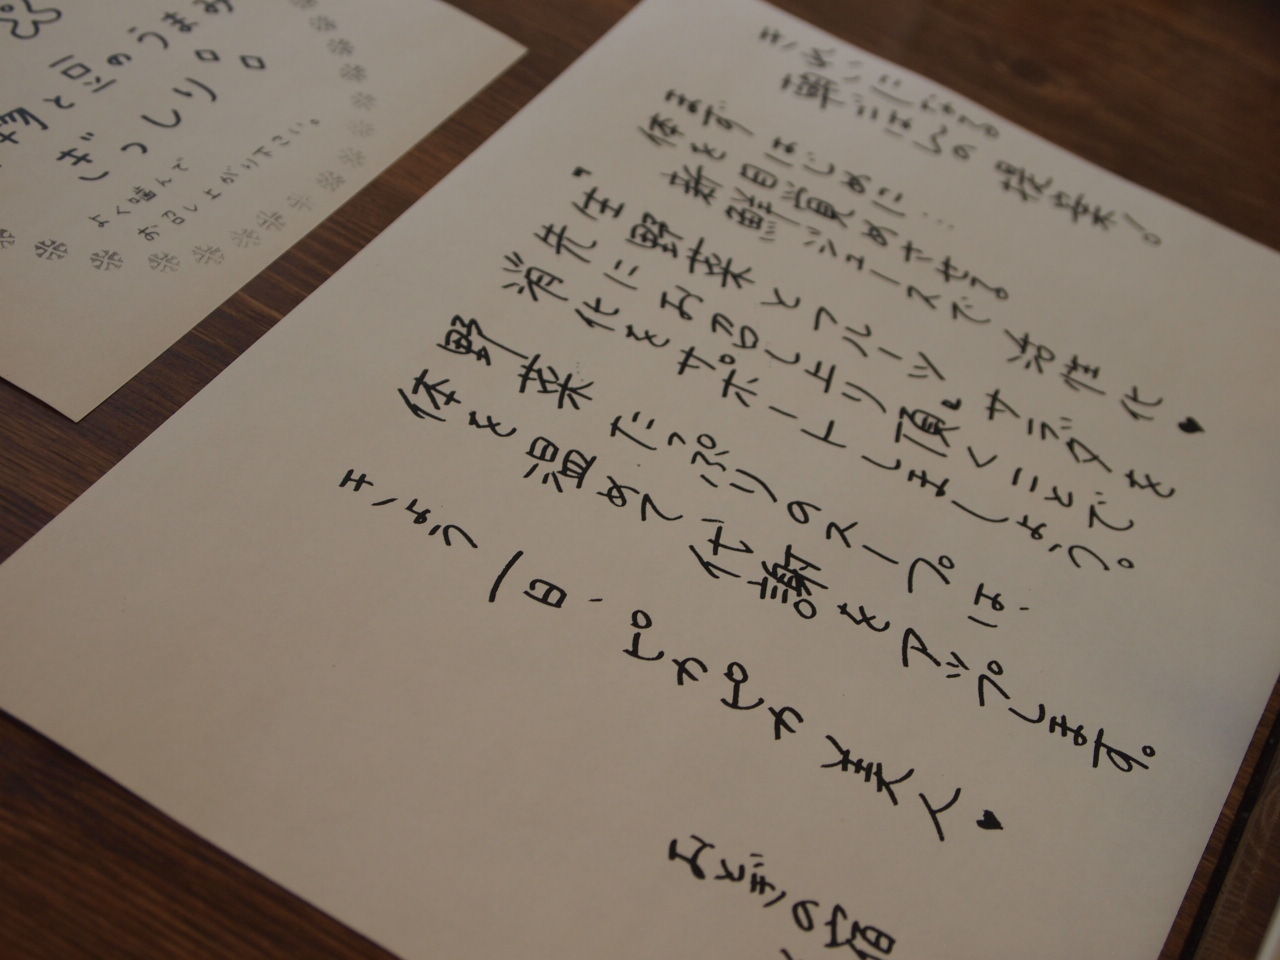 きれいになる
朝ごはんの 提案!。
まず はじめに…
体を目覚めさせる
新鮮ジュースで 活性化♥
"生野菜とフルーツ サラダを
先に お召し上り頂くことで
消化をサポートしましょう。
野菜 たっぷりのスープ。は、
体を温めて 代謝をアップします。
きょう一日、ピカピカ美人♥
おとぎの宿
と豆のうまみ
ぎっしり。。
よく噛んで
お召し上がり下さい。